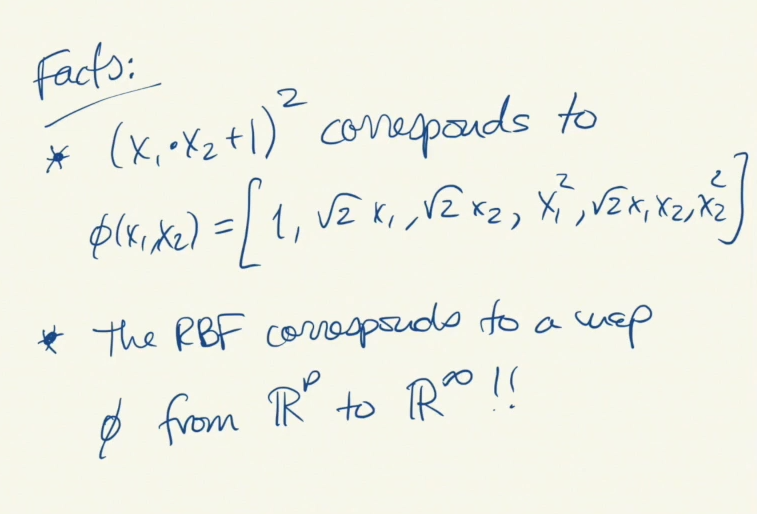 Facts:
* (x₁·x₂+1)² corresponds to
φ(x₁,x₂) = [1, √2 x₁, √2 x₂, x₁², √2x₁x₂, x₂²]
* the RBF corresponds to a map
φ from ℝᵖ to ℝ^∞ !!